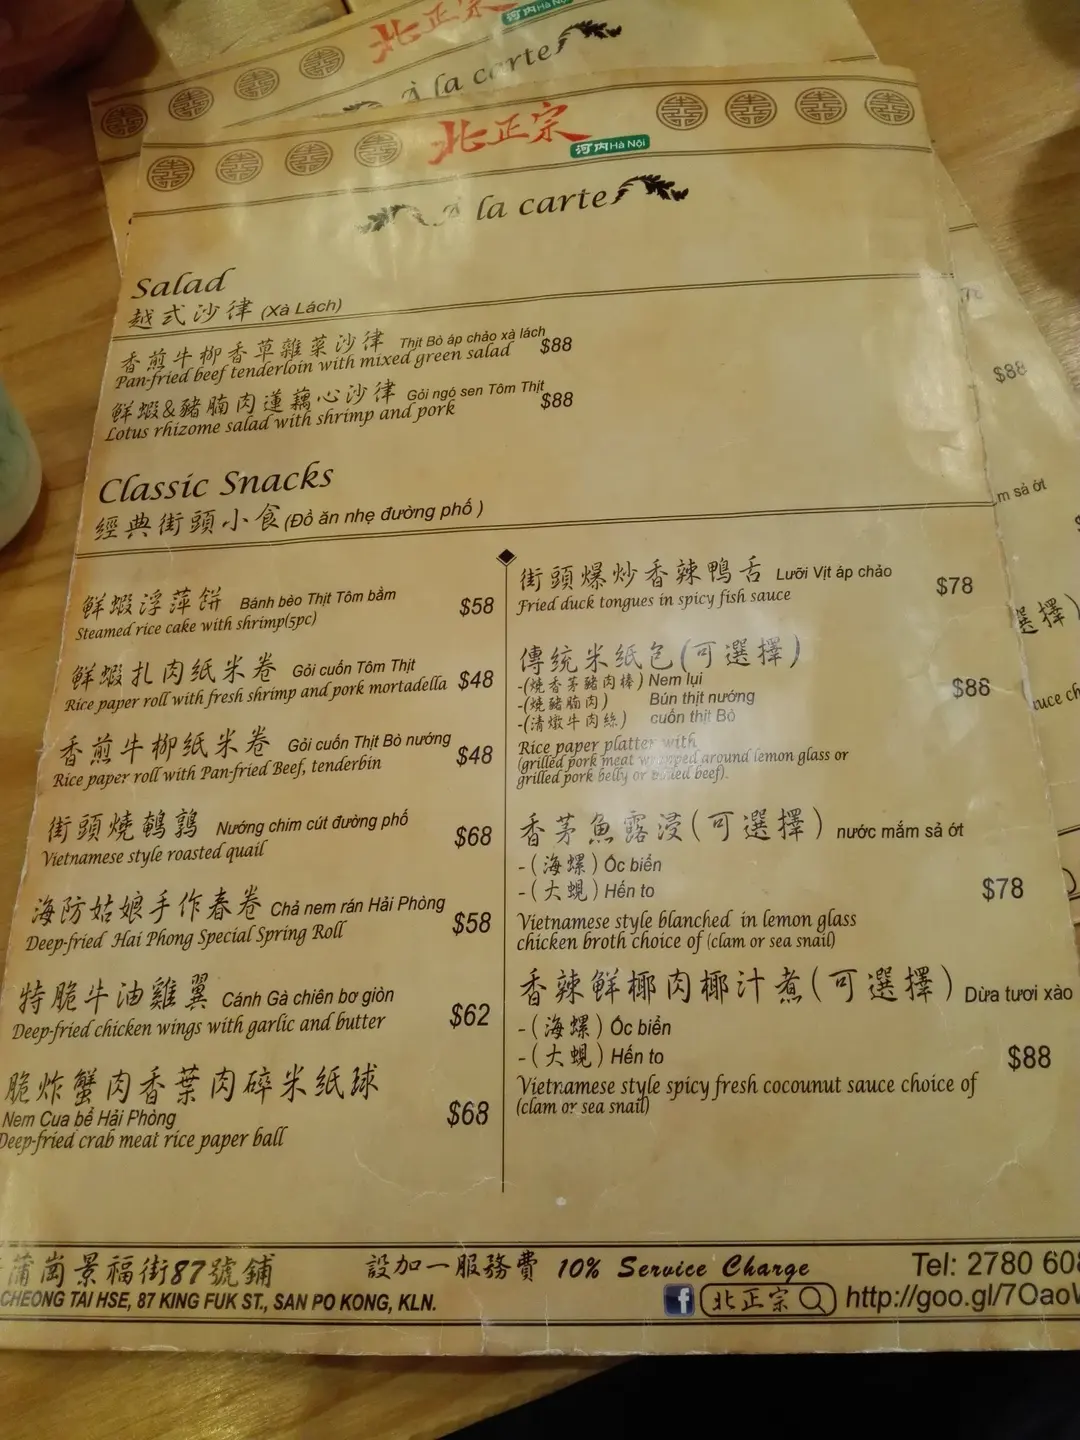 北正宗
河内Hà Nội
À la carte
北正宗
河内Hà Nội
À la carte
Salad
越式沙律 (Xà Lách)
香煎牛柳香草雜菜沙律 Thịt Bò áp chảo xà lách $88
Pan-fried beef tenderloin with mixed green salad
鮮蝦&豬腩肉蓮藕心沙律 Gỏi ngó sen Tôm Thịt $88
Lotus rhizome salad with shrimp and pork
Classic Snacks
經典街頭小食(Đồ ăn nhẹ đường phố )
鮮蝦浮萍餅 Bánh bèo Thịt Tôm bằm $58
Steamed rice cake with shrimp(5pc)
鮮蝦扎肉紙米卷 Gỏi cuốn Tôm Thịt $48
Rice paper roll with fresh shrimp and pork mortadella
香煎牛柳纸米卷 Gỏi cuốn Thịt Bò nướng $48
Rice paper roll with Pan-fried Beef, tenderbin
街頭燒鵪鶉 Nướng chim cút đường phố $68
Vietnamese style roasted quail
海防姑娘手作春卷 Chả nem rán Hải Phòng $58
Deep-fried Hai Phong Special Spring Roll
特脆牛油雞翼 Cánh Gà chiên bơ giòn $62
Deep-fried chicken wings with garlic and butter
脆炸蟹肉香葉肉碎米紙球
Nem Cua bể Hải Phòng $68
Deep-fried crab meat rice paper ball
街頭爆炒香辣鴨舌 Lưỡi Vịt áp chảo $78
Fried duck tongues in spicy fish sauce
傳統米紙包(可選擇)
-(燒香茅豬肉棒) Nem lụi $88
-(燒豬腩肉) Bún thịt nướng
-(清燉牛肉絲) cuốn thịt Bò
Rice paper platter with
(grilled pork meat wrapped around lemon glass or
grilled pork belly or boiled beef).
香茅魚露浸(可選擇) nước mắm sả ớt
-(海螺) Ốc biển
-(大蜆) Hến to $78
Vietnamese style blanched in lemon glass
chicken broth choice of (clam or sea snail)
香辣鮮椰肉椰汁煮(可選擇) Dừa tươi xào
-(海螺) Ốc biển
-(大蜆) Hến to $88
Vietnamese style spicy fresh cocounut sauce choice of
(clam or sea snail)
蒲崗景福街87號鋪 設加一服務費 10% Service Charge Tel: 2780 608
CHEONG TAI HSE, 87 KING FUK ST., SAN PO KONG, KLN. f 北正宗 http://goo.gl/7OaoW
$88
m sả ớt
選擇)
uce ch